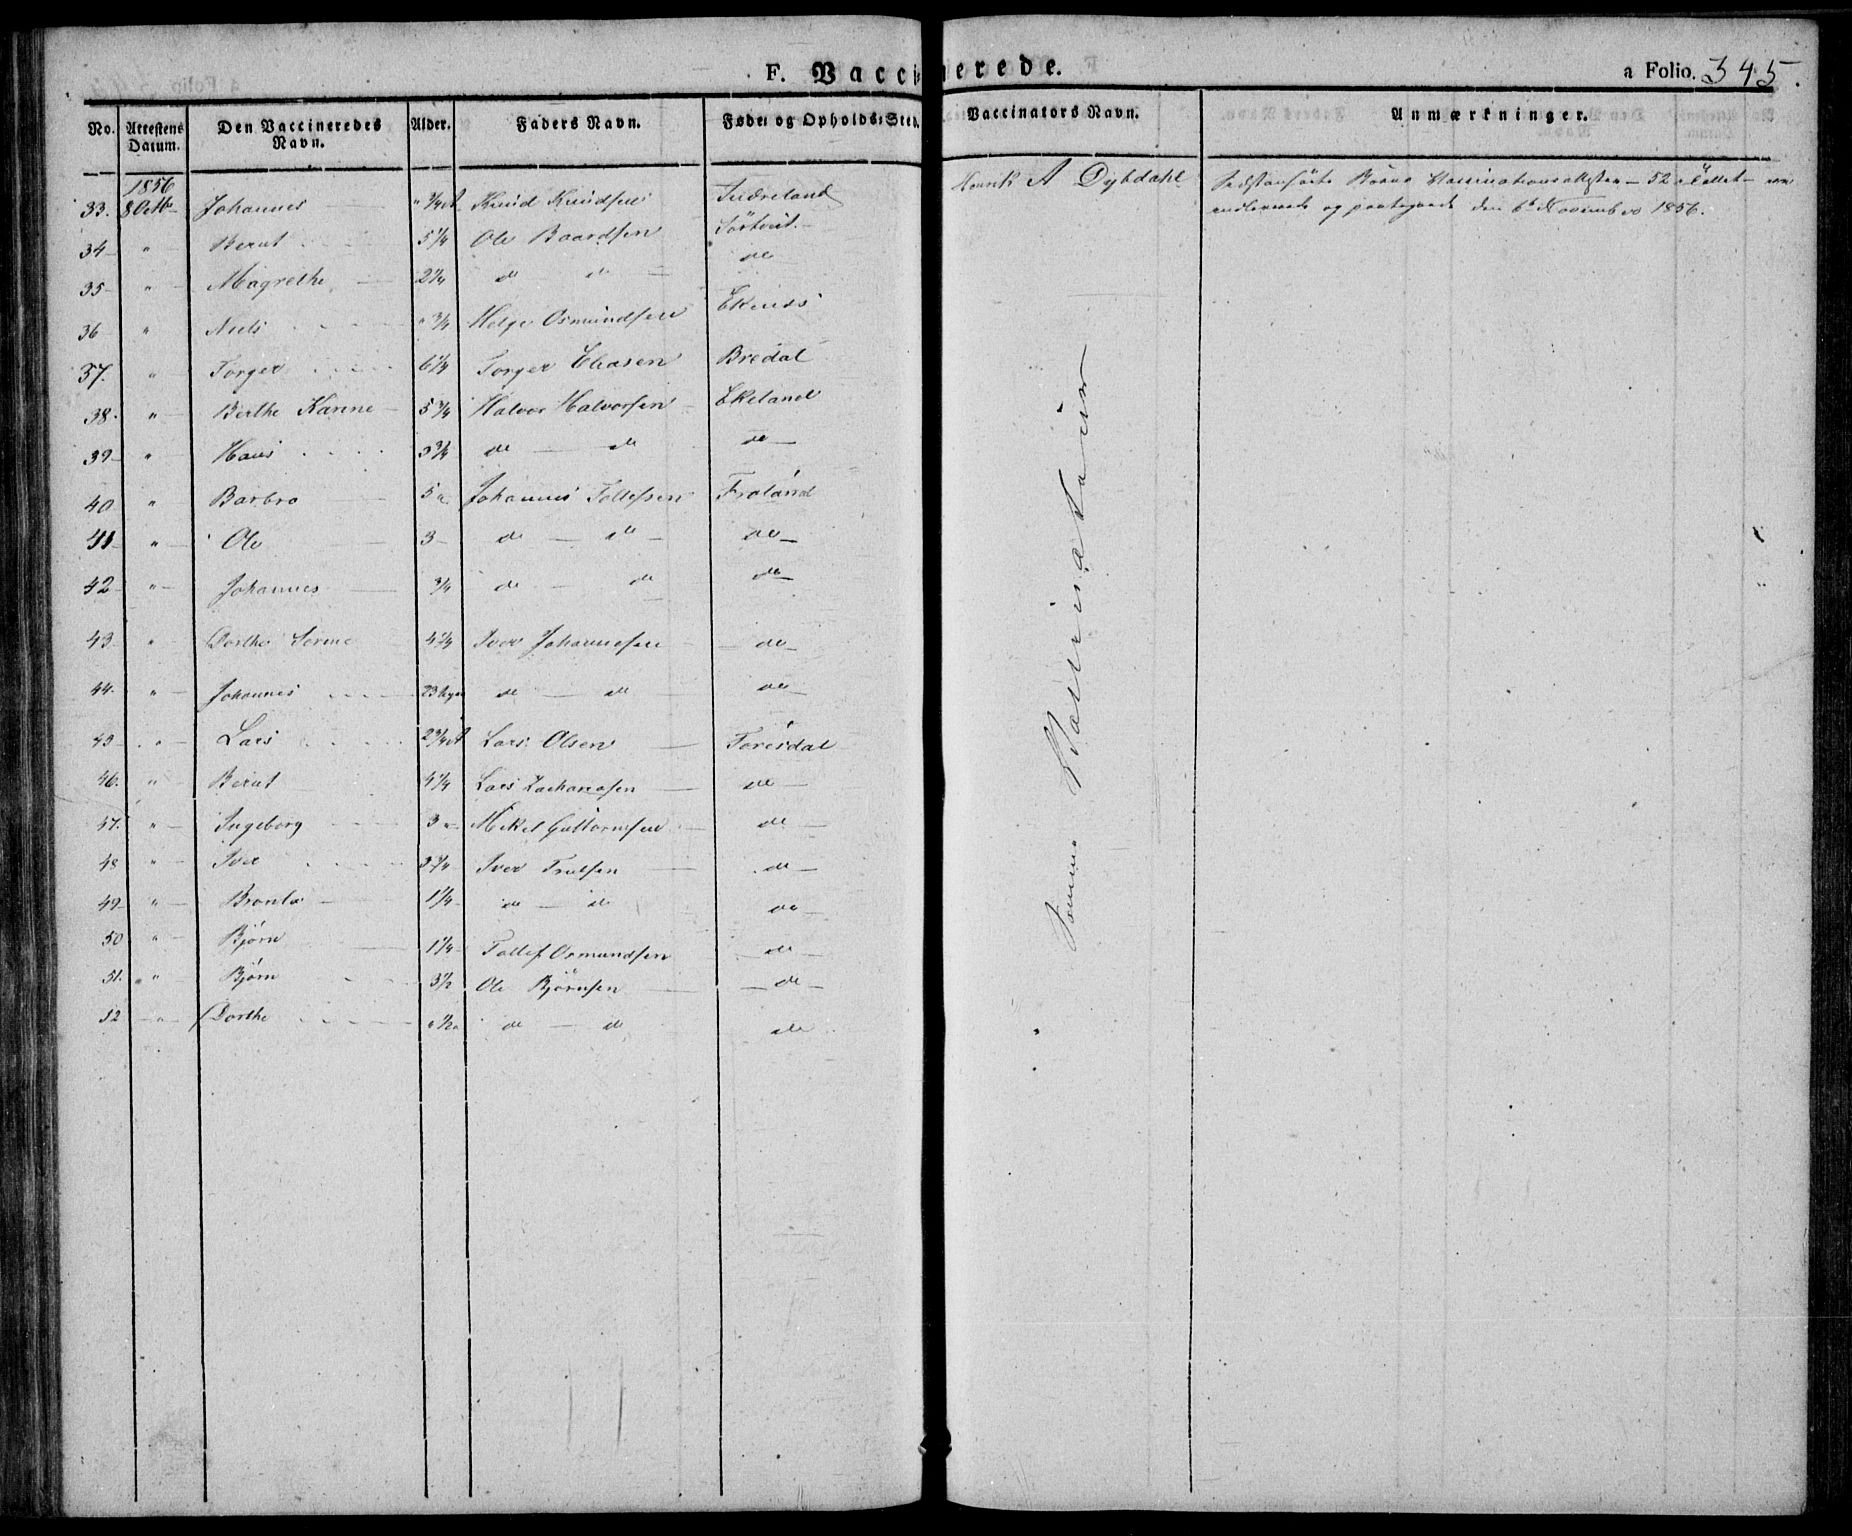 F. Vaccinerede. a Folio. 345.
No. Attestens Datum. Den Vaccineredes Navn. Alder. Faders Navn. Føde- og Opholds-Sted. Vaccinators Navn. Anmærkninger.
1856
33. 8 Octbr Johannes " 3/4 A Knud Knudsen Henrik A Dybdahl Børns Vaccinationsattester 52 i Tallet
og paategnede den 6te November 1856.
34 " Berut 5 1/4 Ole Baardsen
35 " Magrethe 2 1/4 do do do
36 " Niels " 3/4 Helge Osmundsen
37. " Torger 6 1/4 Torger Eliasen Bredal
38. " Berthe Karine 5 3/4 Halvor Halvorsen Ekeland
39 " Hans 3 3/4 do do do
40 " Barbro 5 " Johannes Tollefsen Froland
41 " Ole 3 do do do
42 " Johannes 3/4 do do do
43. " Dorthe Serine 4 1/4 Iver Johannesen do
44. " Johannes 23 Uger do do do
45 " Lars 2 3/4 A Lars Olsen Foresdal
46. " Berut 4 1/4 Lars Zachariasen do
47. " Ingeborg 3 " Mikel Guttormsen do
48 " Iver 3 3/4 Iver Trulsen do
49 " Bronla 1 1/4 do do do
50 " Bjørn 1 1/4 Tollef Osmundsen do
51. " Bjørn 3 1/2 Ole Bjørnsen do
52 " Dorthe " 1/2 do do do
Samme Vaccinateur